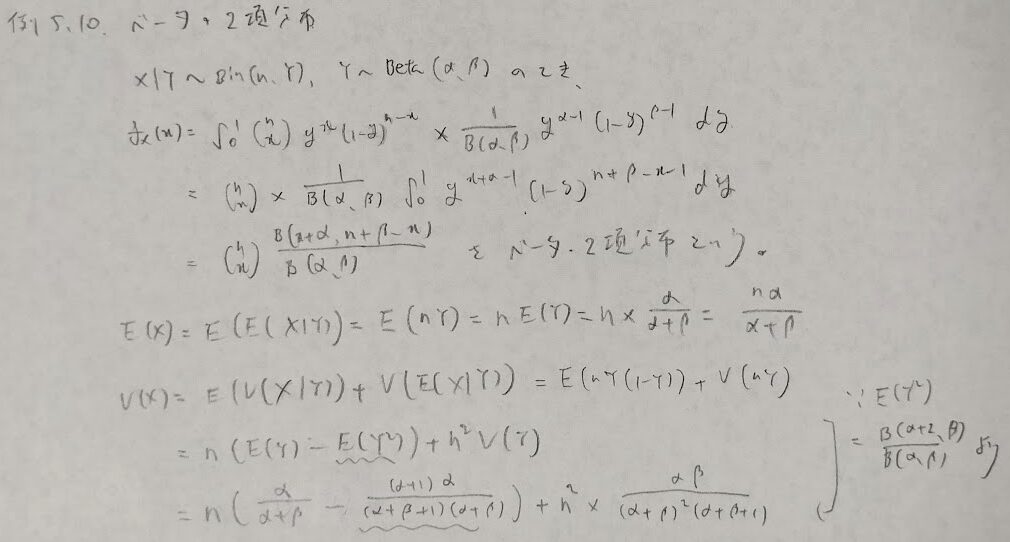 例5.10. ベータ・2項分布
X|Y ~ Bin(n, Y), Y ~ Beta(α, β) のとき、
f_X(x) = ∫₀¹ (n x) y^x (1-y)^{n-x} × 1/B(α, β) y^{α-1} (1-y)^{β-1} dy
= (n x) × 1/B(α, β) ∫₀¹ y^{x+α-1} (1-y)^{n+β-x-1} dy
= (n x) B(x+α, n+β-x)/B(α, β) を ベータ・2項分布という。
E(X) = E(E(X|Y)) = E(nY) = nE(Y) = n × α/(α+β) = nα/(α+β)
V(X) = E(V(X|Y)) + V(E(X|Y)) = E(nY(1-Y)) + V(nY)
= n(E(Y) - E(Y²)) + n² V(Y)
= n(α/(α+β) - (α+1)α/((α+β+1)(α+β))) + n² × αβ/((α+β)²(α+β+1))
∵ E(Y²)
= B(α+2, β)/B(α, β) より